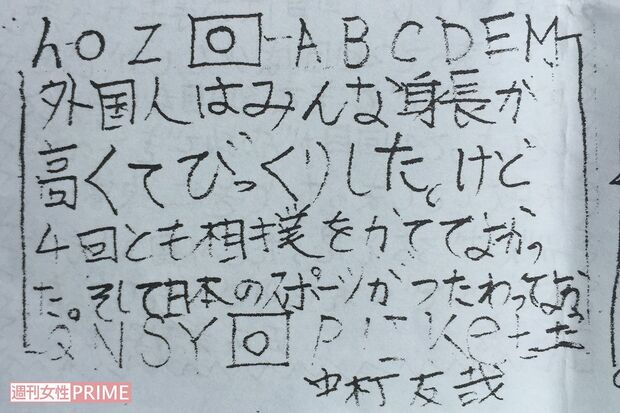 hOZ ABCDEM
外国人はみんな身長が
高くてびっくりした。けど
4回とも相撲をかててよかっ
た。そして日本のスポーツがつたわってよかっ
NSY た
中村友哉
週刊女性PRIME